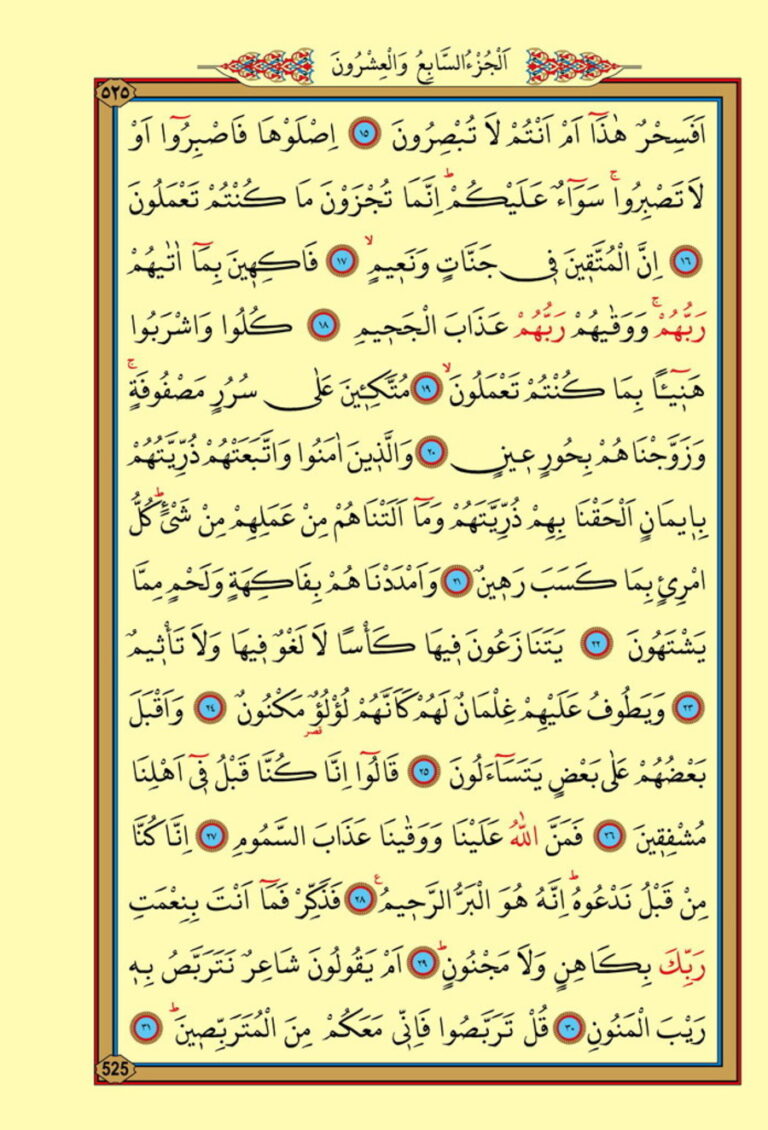 اَلْجُزْءُ السَّابِعُ وَالْعِشْرُونَ
٥٢٥
اَفَسِحْرٌ هٰذَٓا اَمْ اَنْتُمْ لَا تُبْصِرُونَ ﴿١٥﴾ اِصْلَوْهَا فَاصْبِرُٓوا اَوْ
لَا تَصْبِرُواۚ سَوَٓاءٌ عَلَيْكُمْۜ اِنَّمَا تُجْزَوْنَ مَا كُنْتُمْ تَعْمَلُونَ
﴿١٦﴾ اِنَّ الْمُتَّق۪ينَ ف۪ي جَنَّاتٍ وَنَع۪يمٍۙ ﴿١٧﴾ فَاكِه۪ينَ بِمَٓا اٰتٰيهُمْ
رَبُّهُمْۚ وَوَقٰيهُمْ رَبُّهُمْ عَذَابَ الْجَح۪يمِ ﴿١٨﴾ كُلُوا وَاشْرَبُوا
هَن۪ٓيـًٔا بِمَا كُنْتُمْ تَعْمَلُونَۙ ﴿١٩﴾ مُتَّكِـ۪ٔينَ عَلٰى سُرُرٍ مَصْفُوفَةٍۚ
وَزَوَّجْنَاهُمْ بِحُورٍ ع۪ينٍ ﴿٢٠﴾ وَالَّذ۪ينَ اٰمَنُوا وَاتَّبَعَتْهُمْ ذُرِّيَّتُهُمْ
بِا۪يمَانٍ اَلْحَقْنَا بِهِمْ ذُرِّيَّتَهُمْ وَمَٓا اَلَتْنَاهُمْ مِنْ عَمَلِهِمْ مِنْ شَيْءٍۜ كُلُّ
امْرِئٍ بِمَا كَسَبَ رَه۪ينٌ ﴿٢١﴾ وَاَمْدَدْنَاهُمْ بِفَاكِهَةٍ وَلَحْمٍ مِمَّا
يَشْتَهُونَ ﴿٢٢﴾ يَتَنَازَعُونَ ف۪يهَا كَأْسًا لَا لَغْوٌ ف۪يهَا وَلَا تَأْث۪يمٌ
﴿٢٣﴾ وَيَطُوفُ عَلَيْهِمْ غِلْمَانٌ لَهُمْ كَاَنَّهُمْ لُؤْلُؤٌ مَكْنُونٌ ﴿٢٤﴾ وَاَقْبَلَ
قصر
بَعْضُهُمْ عَلٰى بَعْضٍ يَتَسَٓاءَلُونَ ﴿٢٥﴾ قَالُٓوا اِنَّا كُنَّا قَبْلُ ف۪ٓي اَهْلِنَا
مُشْفِق۪ينَ ﴿٢٦﴾ فَمَنَّ اللّٰهُ عَلَيْنَا وَوَقٰينَا عَذَابَ السَّمُومِ ﴿٢٧﴾ اِنَّا كُنَّا
مِنْ قَبْلُ نَدْعُوهُۜ اِنَّهُ هُوَ الْبَرُّ الرَّح۪يمُ۟ ﴿٢٨﴾ فَذَكِّرْ فَمَٓا اَنْتَ بِنِعْمَتِ
رَبِّكَ بِكَاهِنٍ وَلَا مَجْنُونٍۜ ﴿٢٩﴾ اَمْ يَقُولُونَ شَاعِرٌ نَتَرَبَّصُ بِه۪
رَيْبَ الْمَنُونِ ﴿٣٠﴾ قُلْ تَرَبَّصُوا فَاِنّ۪ي مَعَكُمْ مِنَ الْمُتَرَبِّص۪ينَۜ ﴿٣١﴾
525